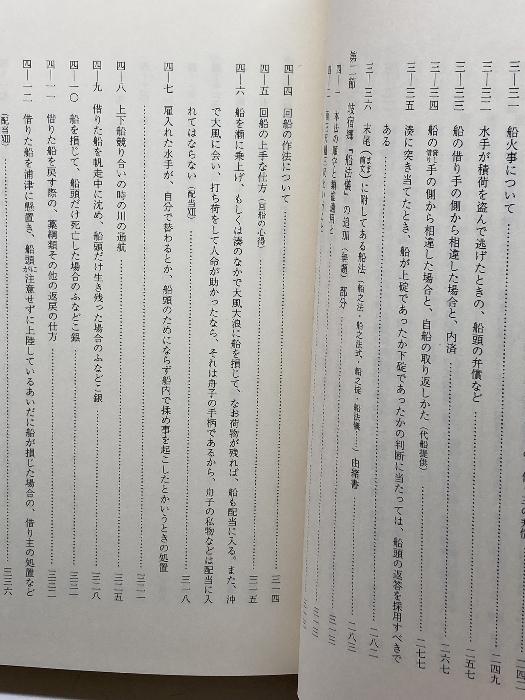 三―三一 船火事について
二四二
三―三二 水手が積荷を盗んで逃げたときの、船頭の弁償など
二四九
三―三三 船の借り手の側から相違した場合と、内済
二五七
三―三四 船の貸し手の側から相違した場合と、自船の取り返しかた（代船提供）
二六七
三―三五 湊に突き当てたとき、船が上碇であったか下碇であったかの判断に当たっては、船頭の返答を採用すべきで
ある
二七七
三―三六 末尾（前文）に附してある船法（船之法・船之法式・船之掟・船法儀…）由緒書
二八二
第二節
『船法儀』の追加（無題）部分
二八三
四―四 回船の作法について
三一四
四―五 回船の上手な仕方（回船の心得）
三一五
四―六 船を瀬に乗上げ、もしくは湊のなかで大風大浪に船を損じて、なお荷物が残れば、船も配当に入る。また、沖
で大風に会い、打ち荷をして人命が助かったなら、それは舟子の手柄であるから、舟子の私物などは配当に入
れてはならない（配当Ⅶ）
三一八
四―七 雇入れた水手が、自分で替わるとか、船頭のためにならず船内で揉め事を起こしたとかいうときの処置
三二一
四―八 上下船競り合いの時の川の通航
三二五
四―九 借りた船を帆走中に沈め、船頭だけ生き残った場合のふなどこ銀
三二八
四―一〇 船を損じて、船頭だけ死亡した場合のふなどこ銀
三三一
四―一一 借りた船を戻す際の、藁綱類その他の返戻の仕方
三三三
四―一二 借りた船を浦津に懸置き、船頭が注意せずに上陸しているあいだに船が損じた場合の、借り主の処置など
三三六